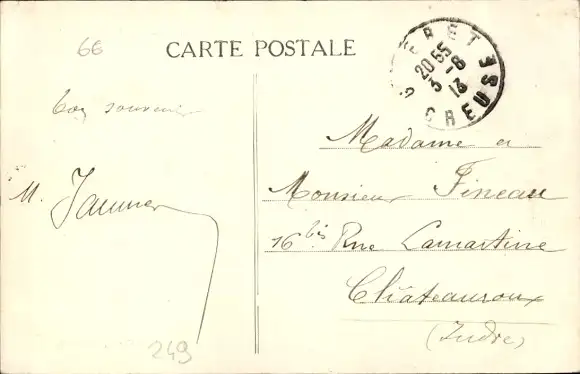 66
CARTE POSTALE
GUERET
20 55
3 -8
13
CREUSE
souvenir
M.
Madame et
Monsieur Fineau
16 bis Rue Lamartine
Châteauroux
(Indre)
249